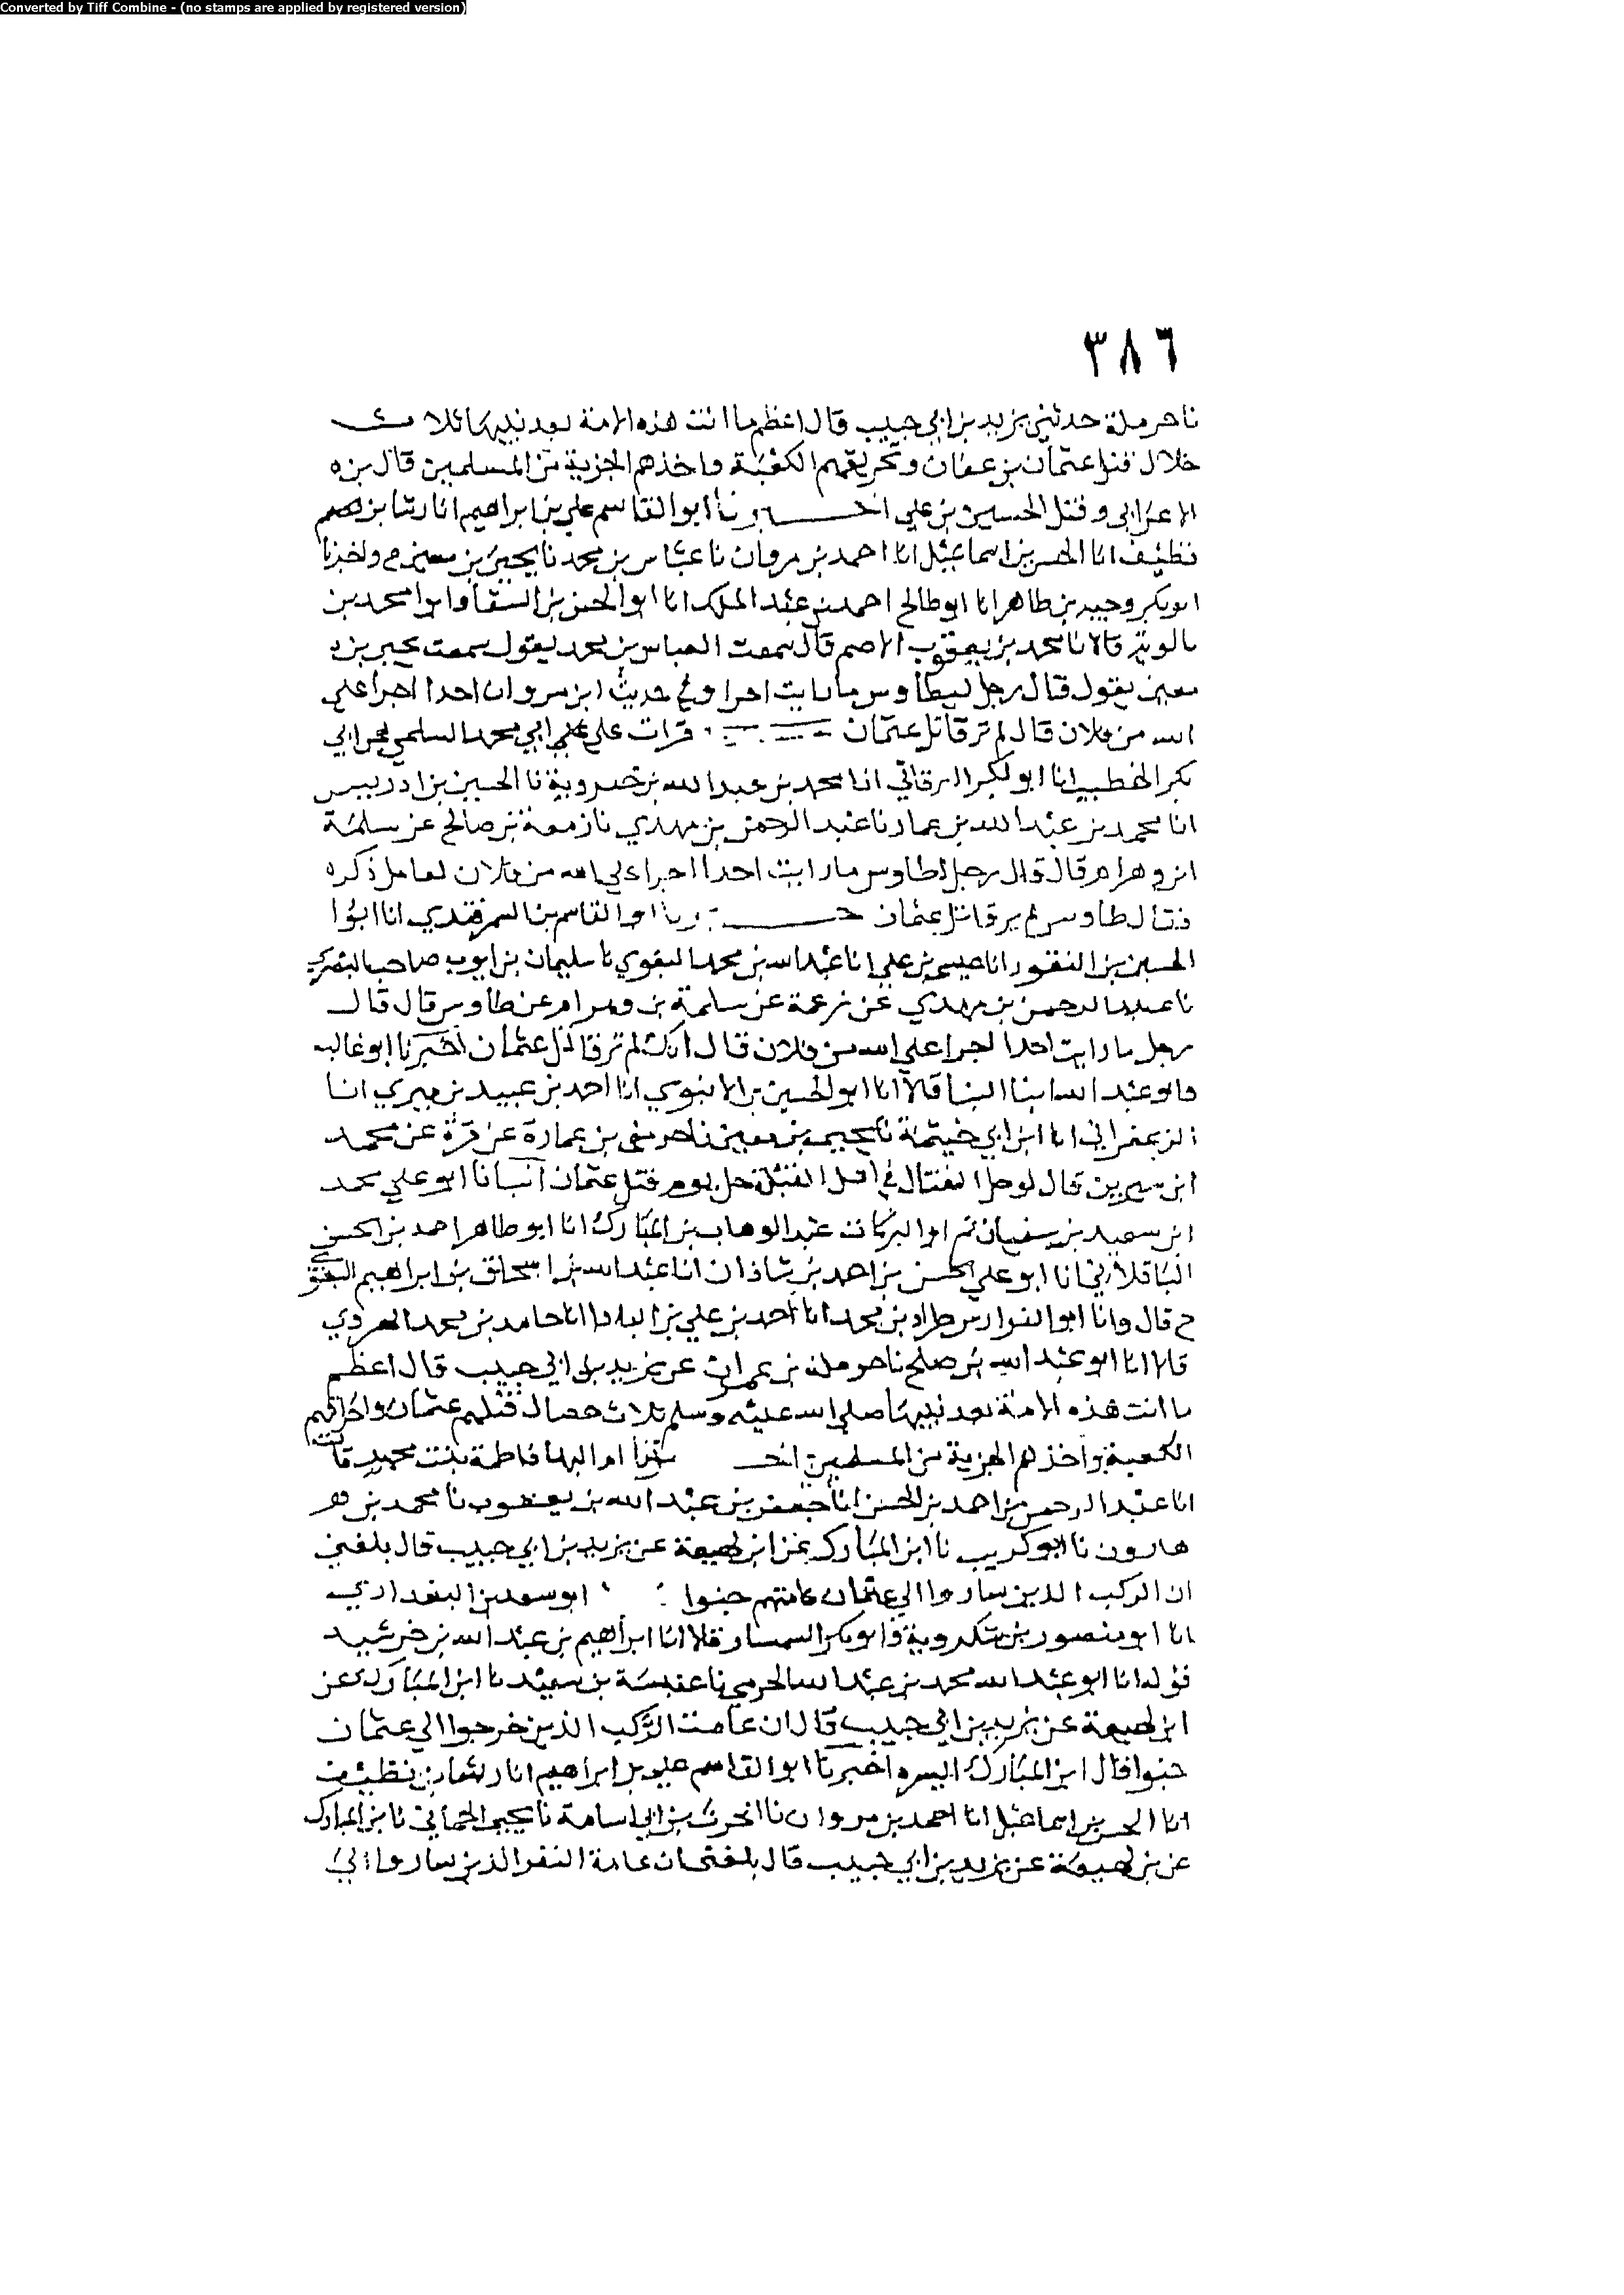 Converted by Tiff Combine - (no stamps are applied by registered version)
٣٨٦
نا حرملة حدثني يزيد بن ابي حبيب قال اعظم ما اتت هذه الامة بعد نبيها ثلاث
خلال قتل عثمان بن عفان وتحريقهم الكعبة واخذهم الجزية من المسلمين قال بن
الاعرابي وقتل الحسين بن علي اخبرنا ابو القاسم علي بن ابراهيم انا رشا بن
نظيف انا الحسن بن اسماعيل انا احمد بن مروان نا عباس بن محمد نا يحيى بن معين ح واخبرنا
ابو بكر وجيه بن طاهر انا ابو طالح احمد بن عبد الملك انا ابو الحسن بن السقا وابو محمد بن
بالويه قالا نا محمد بن يعقوب الاصم قال سمعت العباس بن محمد يقول سمعت يحيى بن
معين يقول قال رجل لطاوس ما رايت احدا وفي حديث ابن مروان احدا اجرا على
الله من فلان قال لم تر قاتل عثمان قرات على ابي محمد السلمي عن ابي
بكر الخطيب انا ابو بكر البرقاني انا محمد بن عبد الله بن خميرويه نا الحسين بن ادريس
انا محمد بن عبد الله بن عمار نا عبد الرحمن بن مهدي نا زمعة بن صالح عن سلمة
ابن وهرام قال قال رجل لطاوس ما رايت احدا اجرا على الله من فلان لعامل ذكره
فقال طاوس لم ير قاتل عثمان اخبرنا ابو القاسم بن السمرقندي انا ابو
الحسين بن النقور انا عيسى بن علي انا عبد الله بن محمد البغوي نا سليمان بن ايوب صاحب البصري
نا عبد الرحمن بن مهدي عن زمعة عن سلمة بن وهرام عن طاوس قال قال
رجل ما رايت احدا اجرا على الله من فلان قال انك لم تر قاتل عثمان اخبرنا ابو غالب
وابو عبد الله ابنا البنا قالا انا ابو الحسين بن الابنوسي انا احمد بن عبيد بن بيري انا
الزعفراني انا ابن ابي خيثمة نا يحيى بن معين نا حرمي بن عمارة عن قرة عن محمد
ابن سيرين قال لو حل القتال في اهل القبلة حل يوم قتل عثمان انبانا ابو علي محمد
ابن سعيد بن سفيان ثم ابو البركات عبد الوهاب بن المبارك انا ابو طاهر احمد بن الحسن
الباقلاني انا ابو علي الحسن بن احمد بن شاذان انا عبد الله بن اسحاق بن ابراهيم البغوي
ح قال وانا ابو الفوارس طراد بن محمد انا احمد بن علي بن البادا انا حامد بن محمد الهروي
قالا انا ابو عبد الله بن صلح نا حرملة بن عمران عن يزيد بن ابي حبيب قال اعظم
ما اتت هذه الامة بعد نبيها صلى الله عليه وسلم ثلاث خصال قتلهم عثمان واحراقهم
الكعبة واخذهم الجزية من المسلمين اخبرتنا ام البها فاطمة بنت محمد قالت
انا عبد الرحمن بن احمد بن الحسن انا جعفر بن عبد الله بن يعقوب نا محمد بن هر
هارون نا ابو كريب نا ابن المبارك عن ابن لهيعة عن يزيد بن ابي حبيب قال بلغني
ان الركب الذين ساروا الى عثمان عامتهم جنوا ابو سعد بن البغدادي
انا ابو منصور بن شكرويه وابو بكر السمسار قالا انا ابراهيم بن عبد الله بن خرشيد
قوله انا ابو عبد الله محمد بن عبد الله الحرمي نا عنبسة بن سعيد نا ابن المبارك عن
ابن لهيعة عن يزيد بن ابي حبيب قال ان عامة الركب الذين خرجوا الى عثمان
جنوا قال ابن المبارك اليسره اخبرنا ابو القاسم علي بن ابراهيم انا رشا بن نظيف
انا الحسن بن اسماعيل انا احمد بن مروان نا الحرث بن ابي اسامة نا يحيى الحماني نا بن المبارك
عن بن لهيعة عن يزيد بن ابي حبيب قال بلغني ان عامة النفر الذين ساروا الى